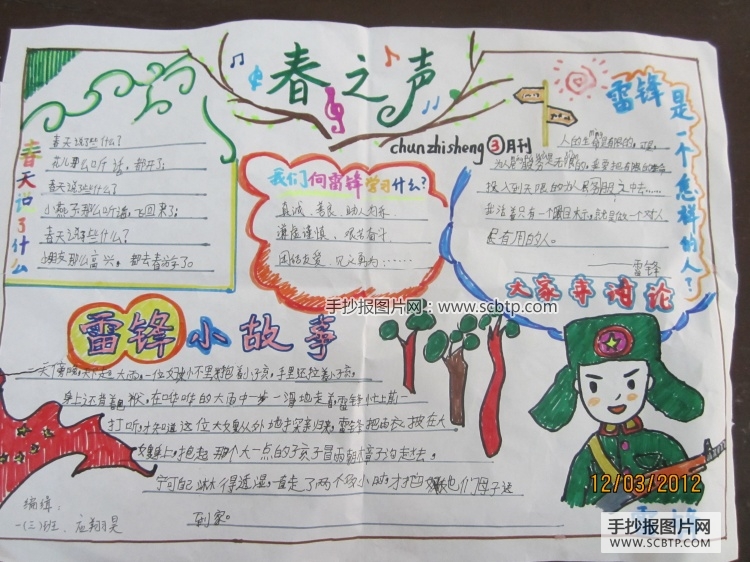 春之声
chunzhisheng ③月刊
春天说了什么
春天说些什么?
花儿那么听话,都开了;
春天说些什么?
小燕子那么听话,飞回来了;
春天说些什么?
小朋友那么高兴,都去春游了。
我们向雷锋学习什么?
真诚、善良、助人为乐、
谦虚谨慎、艰苦奋斗、
团结友爱、见义勇为……
雷锋是一个怎样的人?
人的生命是有限的,可是,
为人民服务是无限的,我要把有限的生命
投入到无限的为人民服务之中去……
我活着只有一个目标,就是做一个对人
民有用的人。
——雷锋
大家来讨论
手抄报图片网:www.scbtp.com
雷锋小故事
一天傍晚,天下起大雨,一位大嫂怀里抱着小孩,手里还拉着小孩,
身上还背着包袱,在哗哗的大雨中一步一滑地走着,雷锋忙上前一
打听才知道这位大嫂从外地探亲归来,雷锋把雨衣披在大
嫂身上,抱起那个大一点的孩子冒雨朝樟子沟走去,
宁可自己淋得透湿,一直走了两个多小时,才把她们母子送
到家。
编缉:
一(三)班、应翔昊
雷锋
12/03/2012
手抄报图片网
WWW.SCBTP.COM